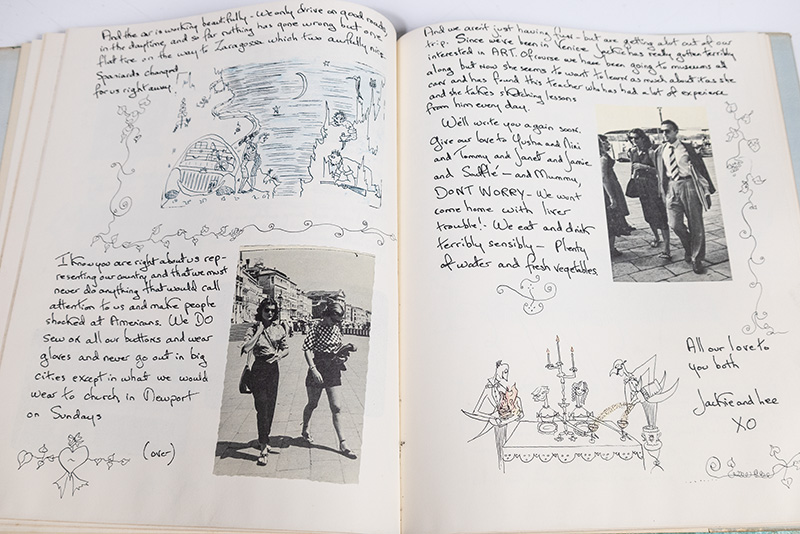 And the car is working beautifully - We only drive on good roads
in the daytime, and so far nothing has gone wrong but one
flat tire on the way to Zaragossa which two awfully nice
Spaniards changed
for us right away!
I know you are right about us rep-
resenting our country and that we must
never do anything that would call
attention to us and make people
shocked at Americans. We DO
sew on all our buttons and wear
gloves and never go out in big
cities except in what we would
wear to church in Newport
on Sundays
(over)
And we aren't just having fun - but are getting a lot out of our
trip. Since we've been in Venice Jackie has really gotten terribly
interested in ART. Of course we have been going to museums all
along but now she seems to want to learn as much about it as she
can and has found this teacher who has had a lot of experience
and she takes sketching lessons
from him every day.
We'll write you again soon.
Give our love to Yusha and Nini
and Tommy and Janet and Jamie
and Sufflé - and Mummy,
DONT WORRY - We wont
come home with liver
trouble! - We eat and drink
terribly sensibly - Plenty
of water and fresh vegetables.
All our love to
you both
Jackie and Lee
XO